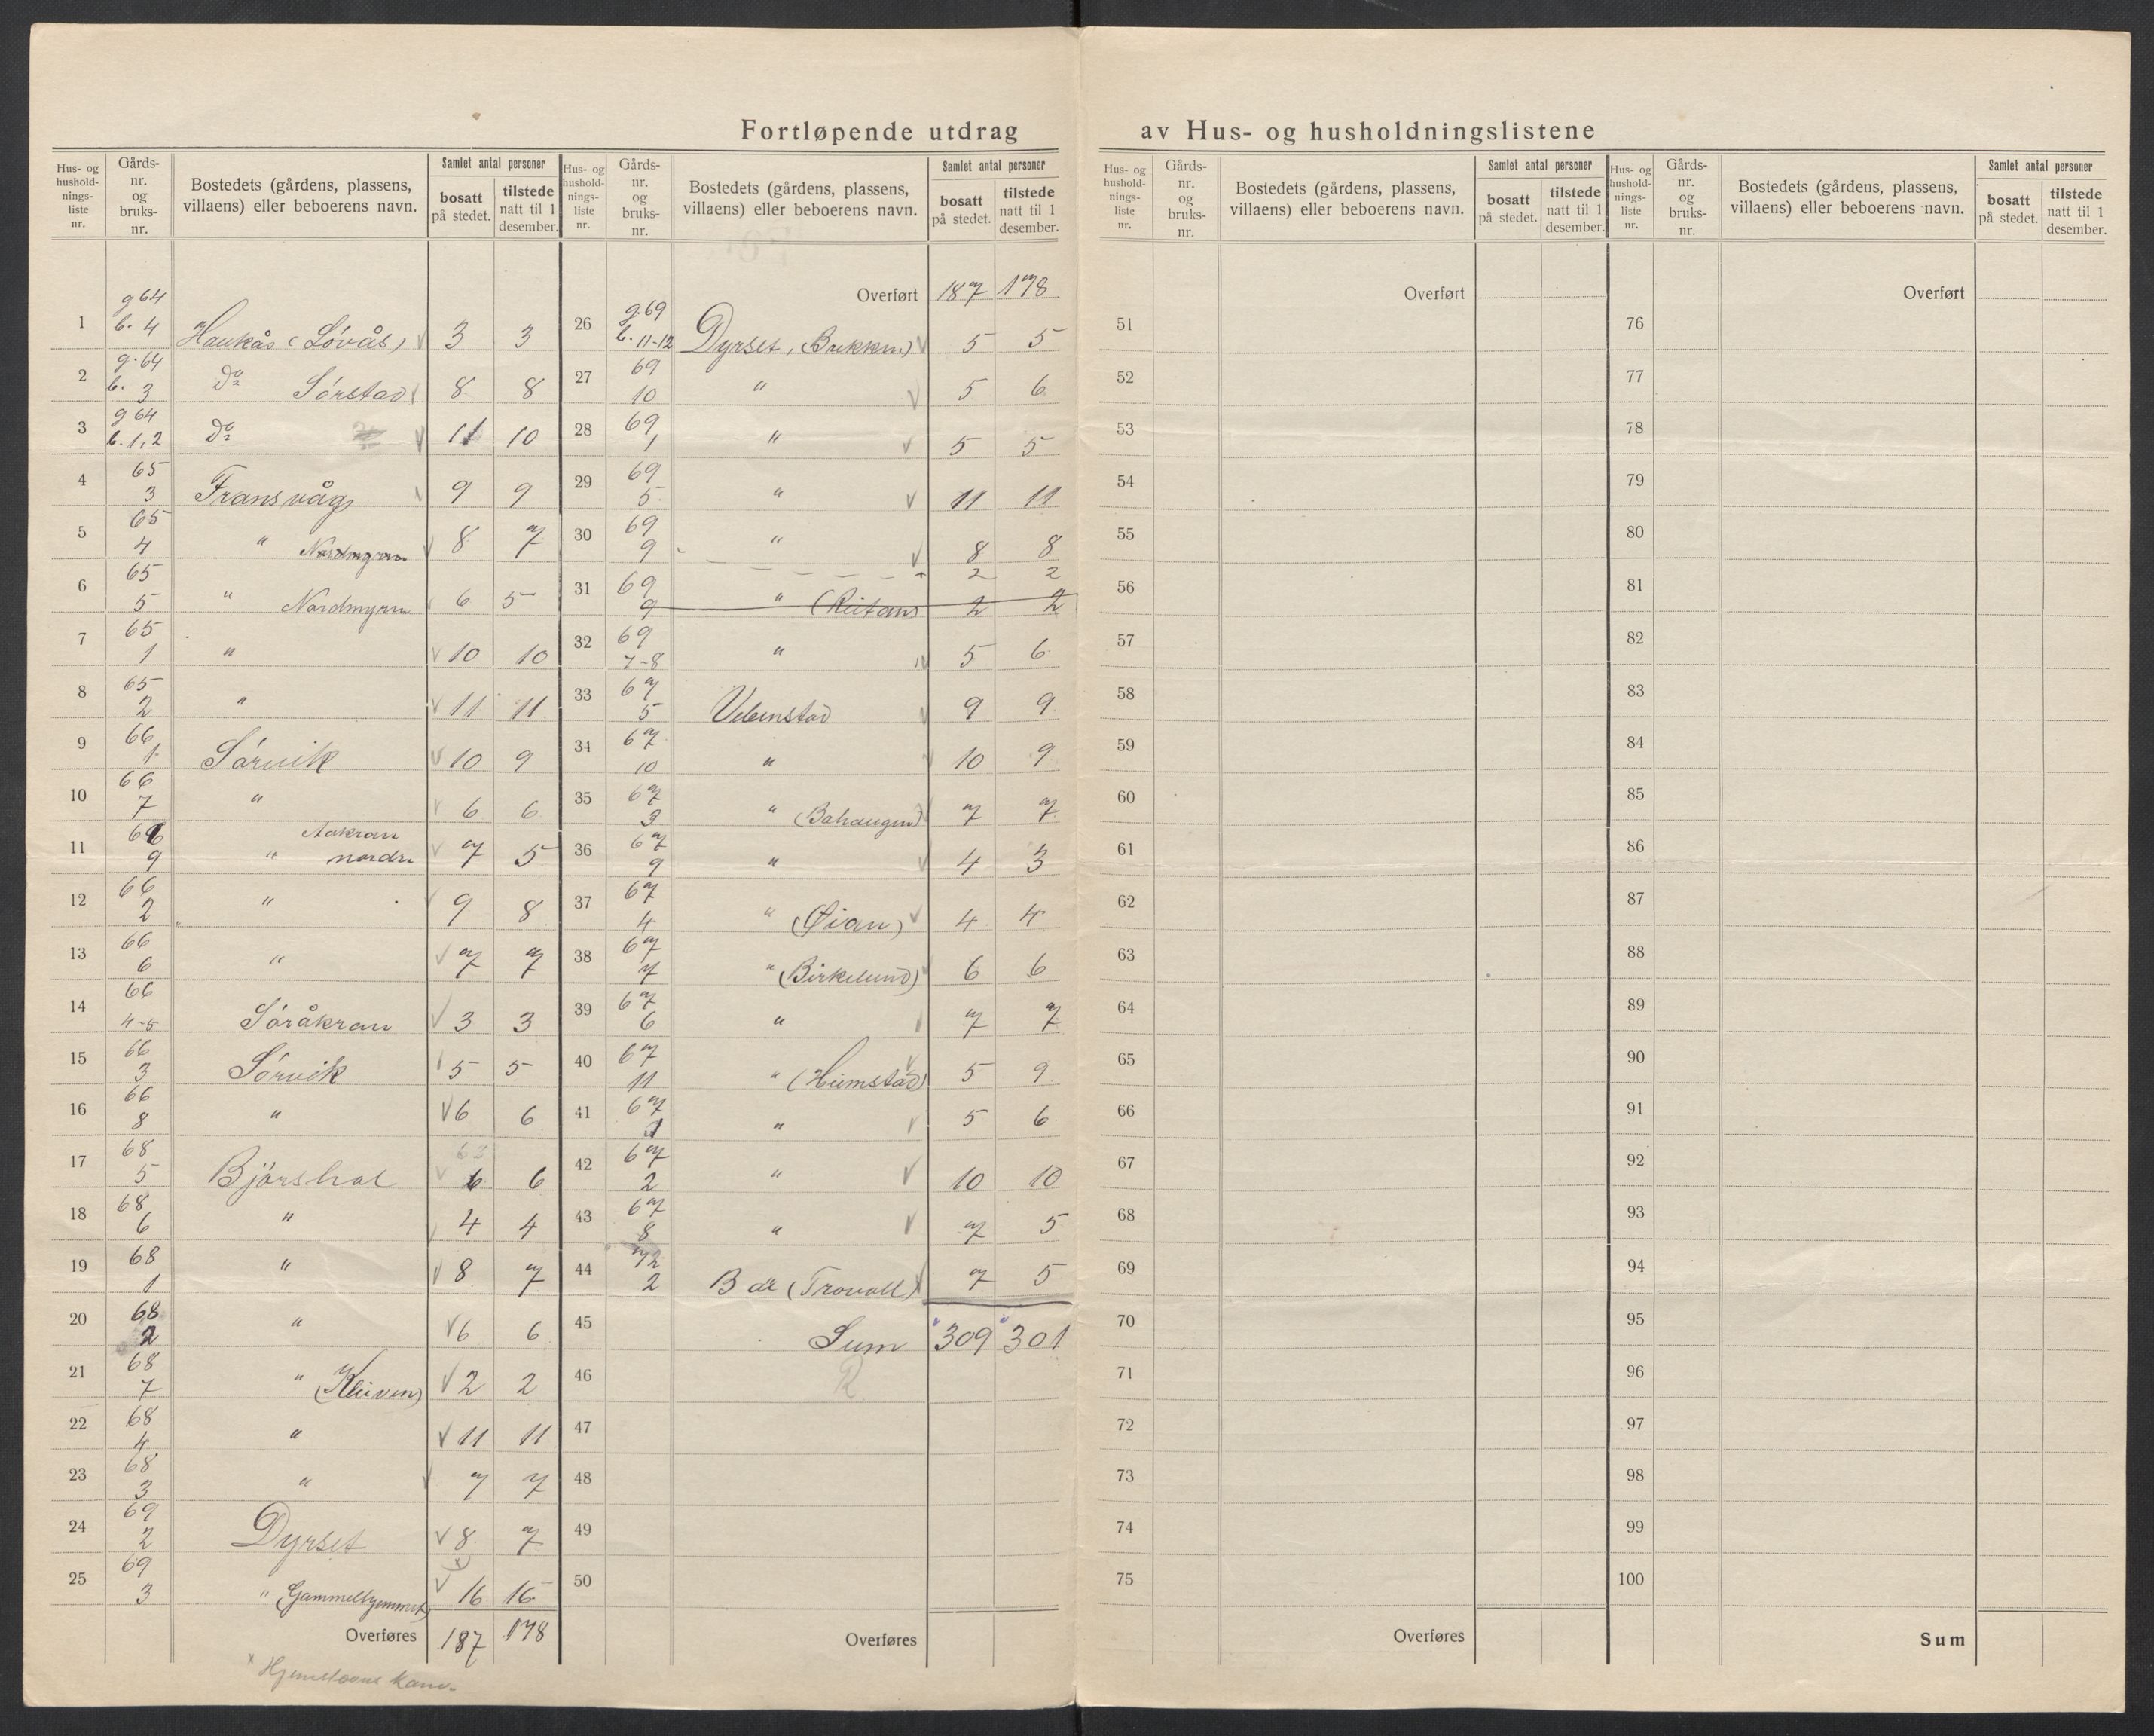 Fortløpende utdrag av Hus- og husholdningslistene
Hus- og husholdningsliste nr. | Gårds-nr. og bruks-nr. | Bostedets (gårdens, plassens, villaens) eller beboerens navn. | Samlet antal personer | bosatt på stedet. | tilstede natt til 1 desember.
1 g 64 b. 4 Haukås (Lövås) 3 3
2 g. 64 b. 3 Do Sörstad 8 8
3 g 64 b. 1, 2 Do 11 10
4 65 3 Fransvåg 9 9
5 65 4 " Nordmyran 8 7
6 65 5 " Nordmyrn 6 5
7 65 1 " 10 10
8 65 2 " 11 11
9 66 1 Sörvik 10 9
10 66 7 " 6 6
11 66 9 " Aakran nordre 7 5
12 66 2 " 9 8
13 66 6 " 7 7
14 66 4-5 Söråkran 3 3
15 66 3 Sörvik 5 5
16 66 8 " 6 6
17 68 5 Björshol 6 6
18 68 6 " 4 4
19 68 1 " 8 7
20 68 2 " 6 6
21 68 7 " (Kleiven) 2 2
22 68 4 " 11 11
23 68 3 " 7 7
24 69 2 Dyrset 8 7
25 69 3 " (Gammelhjemmet) 16 16
Overføres 187 178
x Hjemstavns
Hus- og husholdningsliste nr. | Gårds-nr. og bruks-nr. | Bostedets (gårdens, plassens, villaens) eller beboerens navn. | Samlet antal personer | bosatt på stedet. | tilstede natt til 1 desember.
Overført 187 178
26 g. 69 b. 11-12 Dyrset, (Bakken) 5 5
27 69 10 " 5 6
28 69 1 " 5 5
29 69 5 " 11 11
30 69 9 " 8 8
2 2
31 69 9 " (Reitan) 2 2
32 69 7-8 " 5 6
33 67 5 Vebenstad 9 9
34 67 10 " 10 9
35 67 3 " (Bahaugen) 7 7
36 67 9 " 4 3
37 67 4 " (Øian) 4 4
38 67 7 " (Birkelund) 6 6
39 67 6 " 7 7
40 67 11 " (Heimstad) 5 9
41 67 1 " 5 6
42 67 2 " 10 10
43 67 8 " 7 5
44 72 2 (Trovoll) 7 5
45 Sum 309 301
46
47
48
49
50
Overføres
Hus- og husholdningsliste nr. | Gårds-nr. og bruks-nr. | Bostedets (gårdens, plassens, villaens) eller beboerens navn. | Samlet antal personer | bosatt på stedet. | tilstede natt til 1 desember.
Overført
51
52
53
54
55
56
57
58
59
60
61
62
63
64
65
66
67
68
69
70
71
72
73
74
75
Overføres
Hus- og husholdningsliste nr. | Gårds-nr. og bruks-nr. | Bostedets (gårdens, plassens, villaens) eller beboerens navn. | Samlet antal personer | bosatt på stedet. | tilstede natt til 1 desember.
Overført
76
77
78
79
80
81
82
83
84
85
86
87
88
89
90
91
92
93
94
95
96
97
98
99
100
Sum